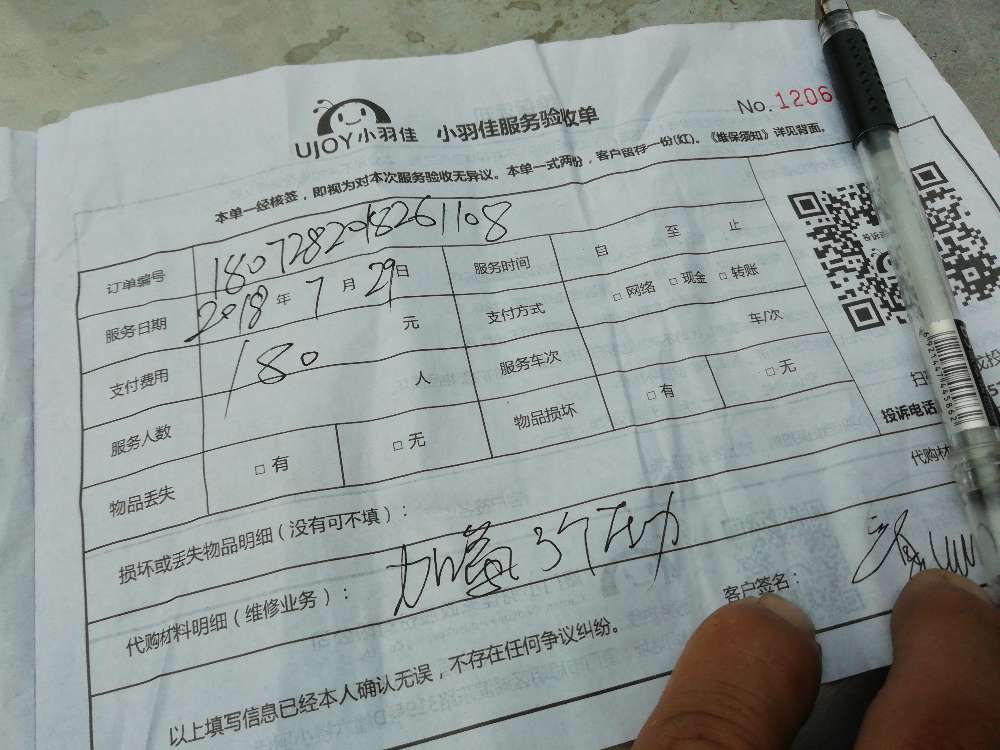 UJOY小羽佳 小羽佳服务验收单
No. 1206
本单一经核签，即视为对本次服务验收无异议。本单一式两份，客户留存一份(红)。《维保须知》详见背面。
订单编号 1807282018261108 服务时间 自 至 止
服务日期 2018年7月29日 支付方式 □网络 □现金 □转账
支付费用 180 元 服务车次 车/次
服务人数 人 物品损坏 □有 □无
物品丢失 □有 □无
投诉电话
损坏或丢失物品明细（没有可不填）：
代购材料明细（维修业务）：
代购材
客户签名：
以上填写信息已经本人确认无误，不存在任何争议纠纷。
6921441445868